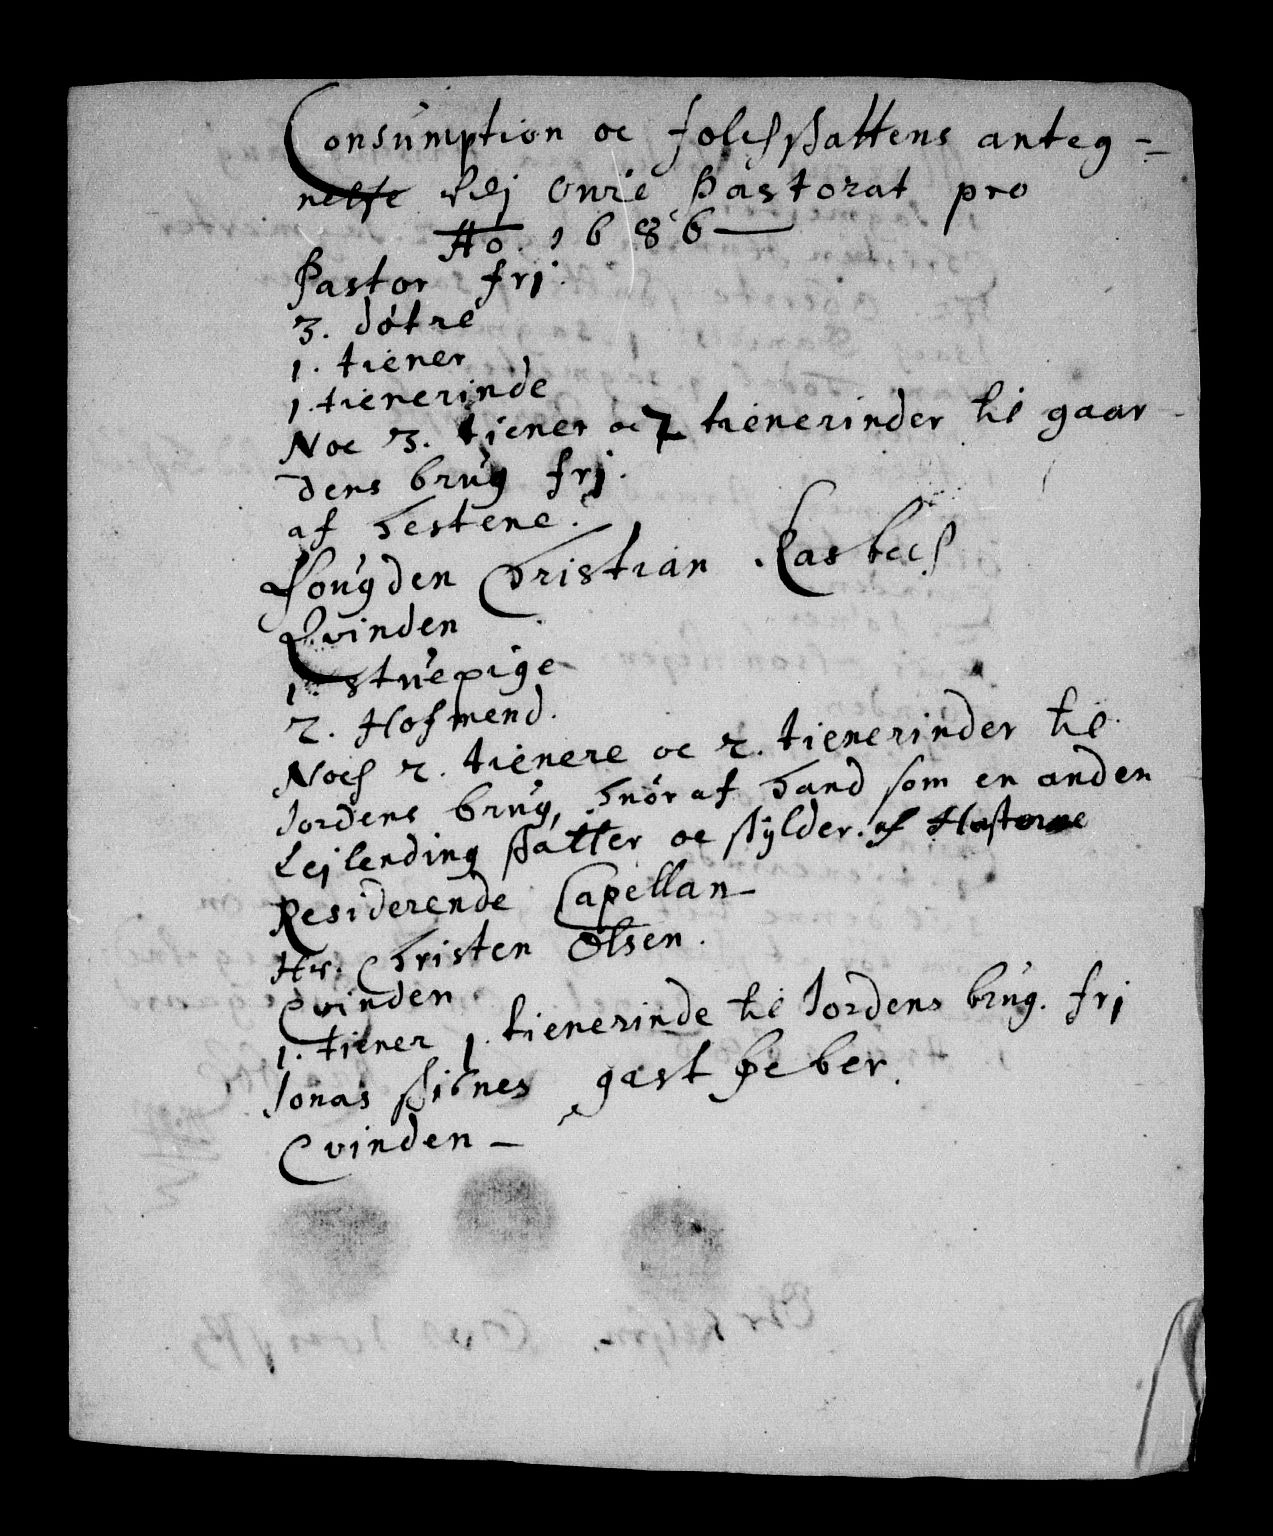 Consumption oc folchskattens anteg-
nelse Paa Onsø Pastorat pro
Ao. 1686
Pastor frj.
3. døtre
1. tiener
1. tienerinde
Noc 3. tiener oc 2 tienerinder til gaar-
dens brug frj.
af hestene.
fougden Christian Kasbech
Qvinden
1. stuepige
2. Hofmend.
Noch 2. tienere oc 2. tienerinder til
Jordens brug, hvoraf hand som en anden
Lejlending skatter oc skylder. af
Residerende Capellan
Hr. Christen Olsen.
Qvinden
1. tiener 1. tienerinde til Jordens brug. frj
Jonas gæstgeber.
Qvinden